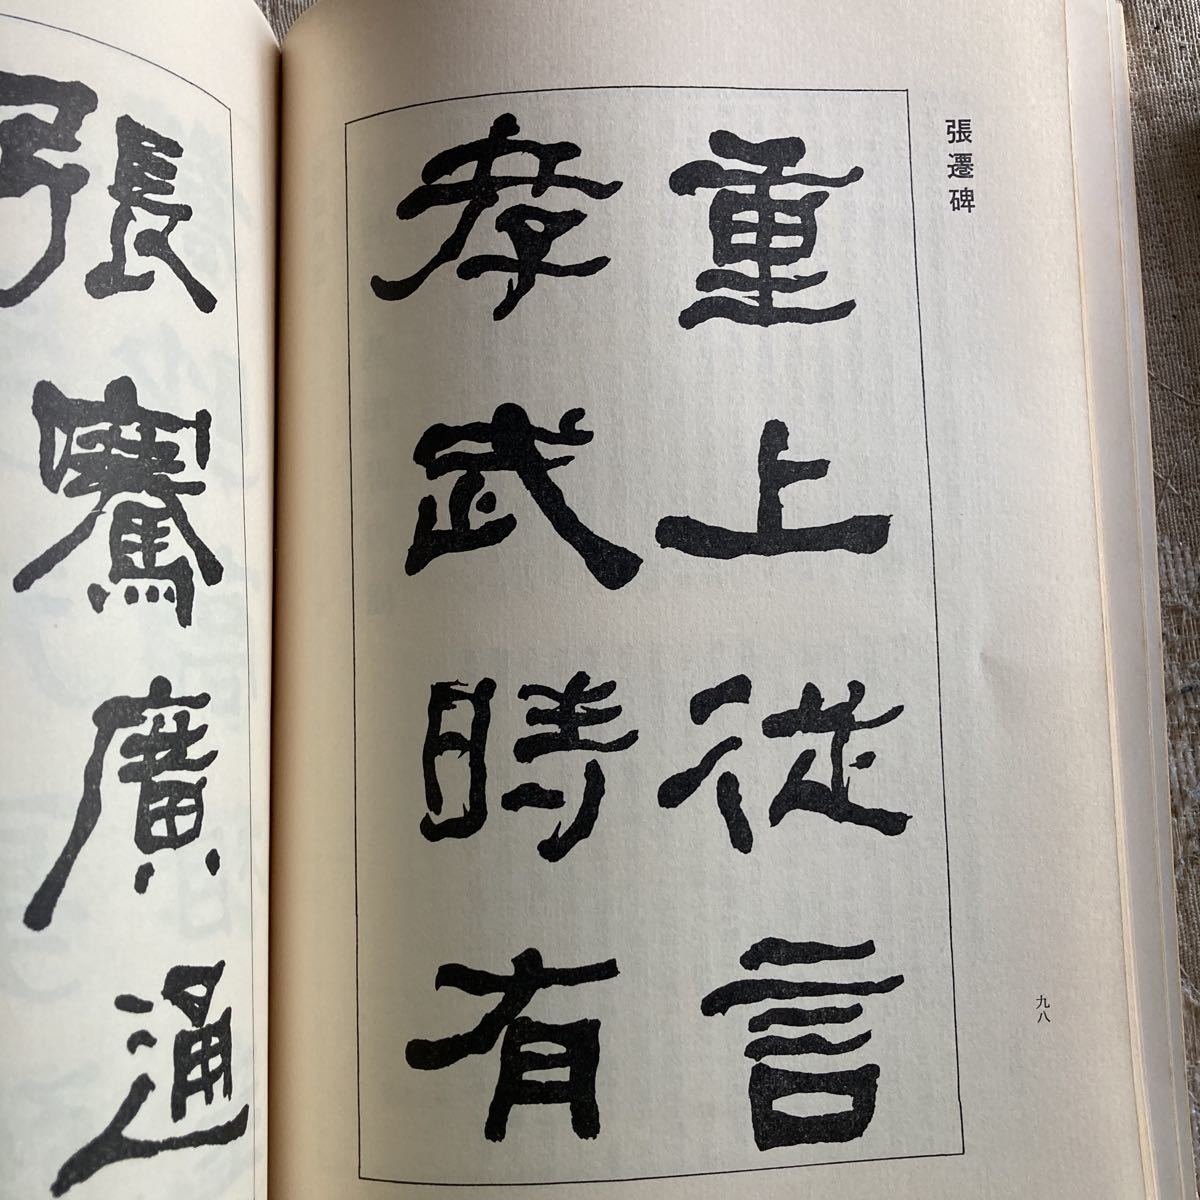 張遷碑
重上從言
孝武時有
張騫廣通
九八